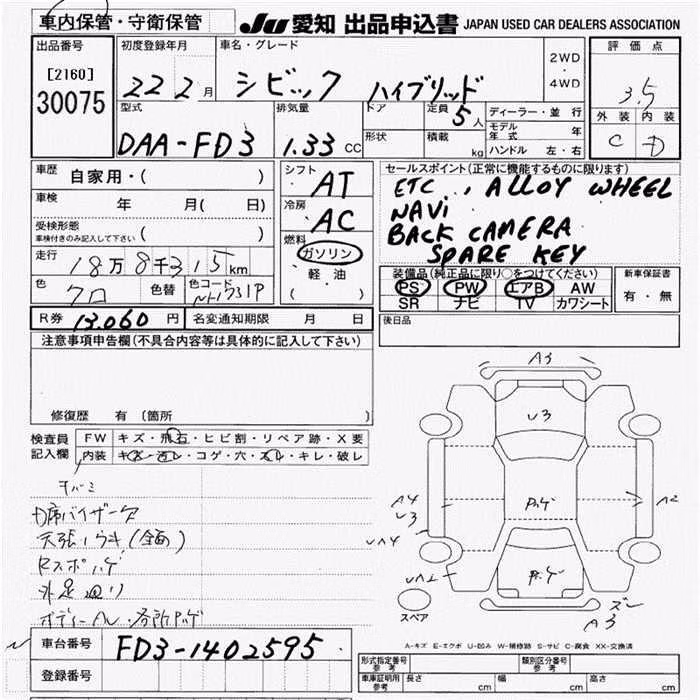 車内保管・守衛保管
JU 愛知 出品申込書 JAPAN USED CAR DEALERS ASSOCIATION
出品番号
[2160]
30075
初度登録年月
22 2 月
車名・グレード
シビック ハイブリッド
2WD
・
4WD
評価点
3.5
外装 内装
C D
型式
DAA-FD3
排気量
1.33 CC
ドア
定員
5人
形状
積載
kg
ディーラー・並行
モデル年式 年
ハンドル 左・右
車歴
自家用・( )
車検
年 月( 日)
受検形態
車検付きのみ記入して下さい ( )
走行
18万8千315km
色
クロ
色替
色コード
シフト
AT
冷房
AC
燃料
ガソリン
軽油
( )
セールスポイント(正常に機能するものに限ります)
ETC, ALLOY WHEEL
NAVi
BACK CAMERA
SPARE KEY
装備品(純正品に限り○をつけてください)
PS PW エアB AW
SR ナビ TV カワシート
新車保証書
有・無
R券 13,060 円
名変通知期限 月 日
後日品
注意事項申告欄(不具合内容等は具体的に記入して下さい)
修復歴 有〔箇所 〕
検査員
記入欄
FW キズ・飛石・ヒビ割・リペア跡・X要
内装 キズ・汚レ・コゲ・穴・スレ・キレ・破レ
D席バイザー欠
天張ウキ(全面)
Rスポハゲ
ボディーAL・各所ハゲ
A3
U3
A4
U3
UA4
ハゲ
A2
ハゲ
UA2
スレ
A3
スペア
A-キズ E-エクボ U-凹み W-補修跡 S-サビ C-腐食 XX-交換済
車台番号
FD3-1402595
登録番号
形式指定番号
参考
類別区分番号
参考
車庫証明用
参考
長さ cm
幅 cm
高さ cm